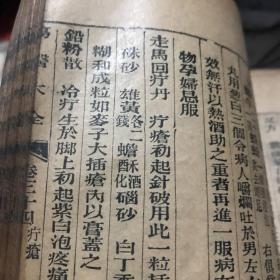 丸用葱白三個令病人嚼爛吐於男左
效無汗以熱酒助之重者再進一服病
物孕婦忌服
走馬回疔丹 疔瘡初起針破用此一粒
硃砂 雄黃各二 蟾酥酒化 硇砂 白丁
糊和成粒如麥子大插瘡內以膏蓋之
鉛粉散 冷疔生於脚上初起紫白泡疼痛
醫大全 卷三十四疔瘡